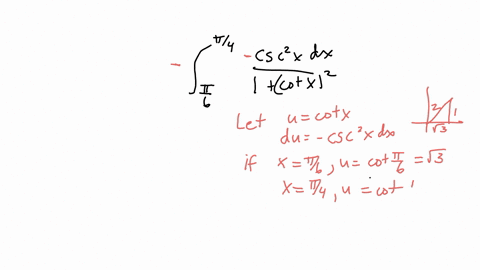 - ∫_{π/6}^{π/4} -csc²x dx / 1+(cotx)²
Let u = cotx
du = -csc²x dx
2 1 √3
if x = π/6, u = cot π/6 = √3
x = π/4, u = cot